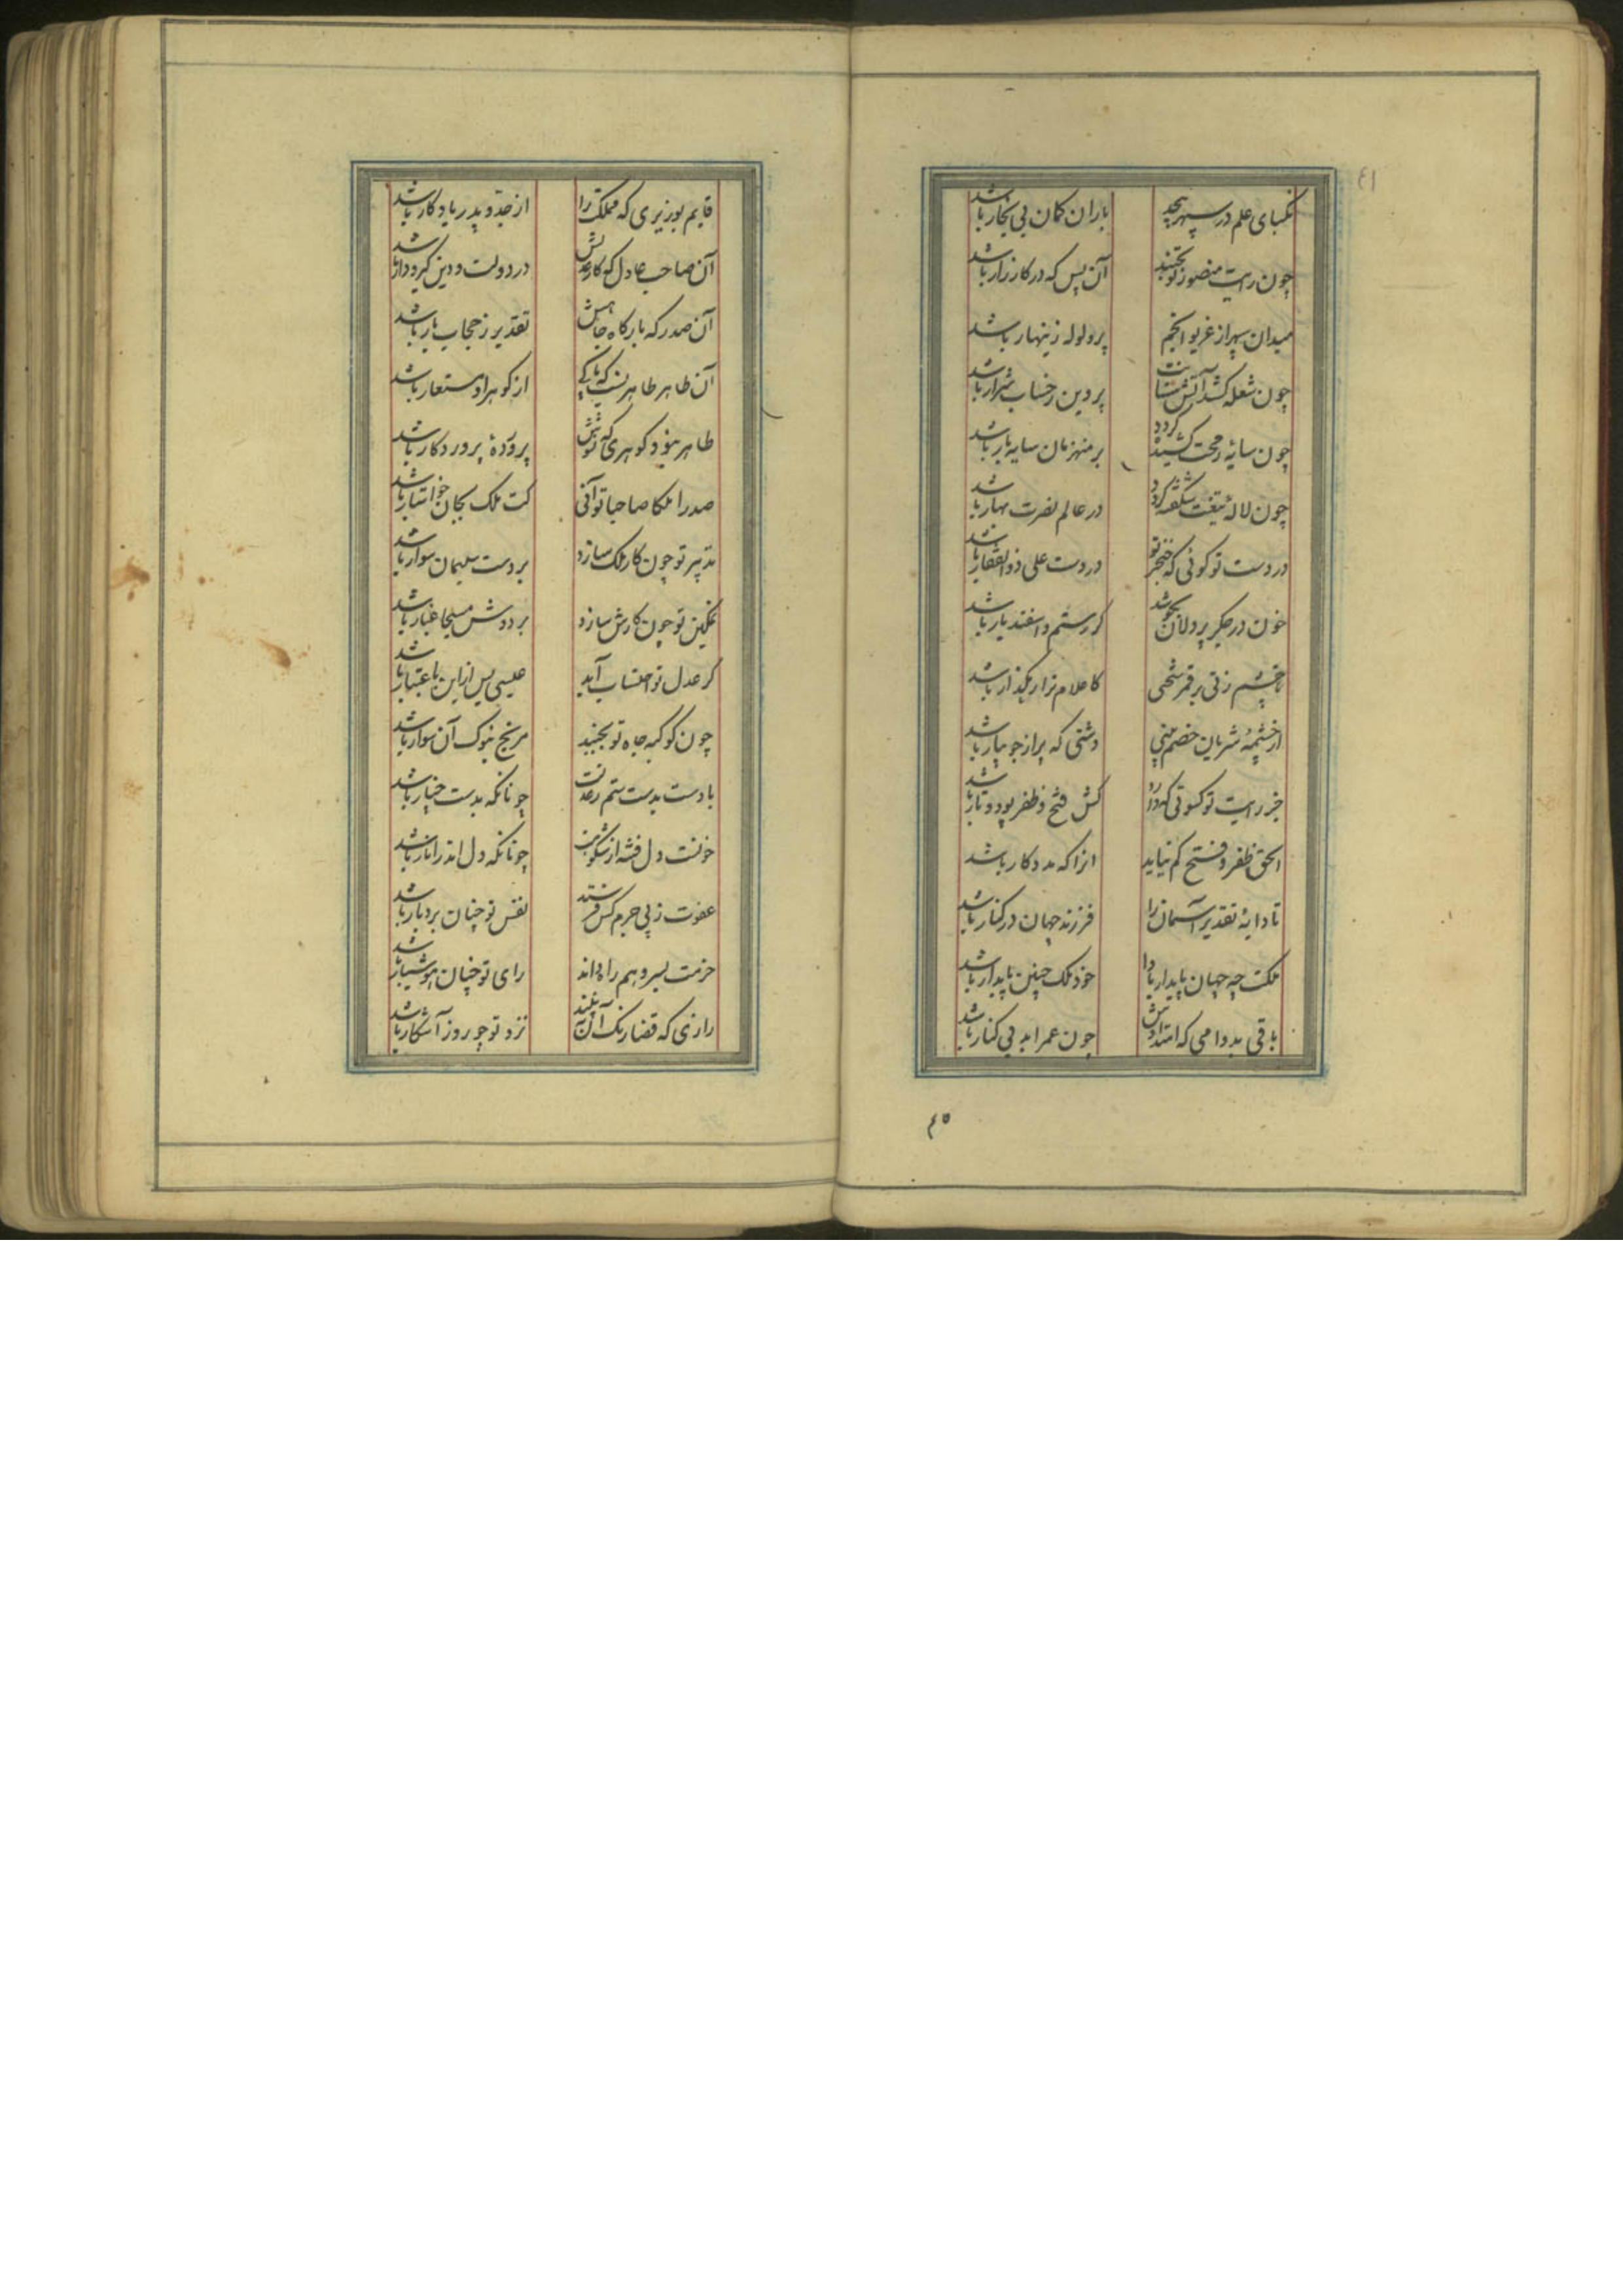 نکبای علم در سپهر پیچد
باران کمان بی بخار باشد
چون رایت منصور تو بجنبد
آن پس که در کارزار باشد
میدان سپهر از غریو انجم
پر ولوله زینهار باشد
چون شعله کشد آتش
پروین ز حساب شرار باشد
چون سایه رمحت کشیده گردد
بر منهزمان سایه بار باشد
چون لاله تیغت شکفته گردد
در عالم نصرت بهار باشد
در دست تو گوئی که خنجر تو
در دست علی ذوالفقار باشد
خون در جگر پردلان بجوشد
گر رستم و اسفندیار باشد
تا چشم زنی بر ممر
کاعلام ترا رهگذار باشد
از چشمه شریان خصم بینی
دشتی که پر از جویبار باشد
جز رایت تو کسوتی که دارد
کش فتح و ظفر پود و تار باشد
الحق ظفر و فتح کم نیاید
انرا که مددکار باشد
تا دایه تقدیر آسمان را
فرزند جهان در کنار باشد
ملکت چه جهان پایدار بادا
خود ملک چنین پایدار باشد
باقی بدوامی که امتدادش
چون عمر ابد بی کنار باشد
٤٥
قایم بوزیری که مملکت را
از جد و پدر یادگار باشد
آن صاحب عادل که کار عدلش
در دولت و دین گیر و دار باشد
آن صدر که بارگاه جاهش
تقدیر ز حجاب بار باشد
آن طاهر طاهر نسب که پاکی
از گوهر او مستعار باشد
طاهر بود گوهری که
پرورده پروردگار باشد
صدرا ملکا صاحبا تو آنی
کت ملک بجان خواستار باشد
تدبیر تو چون کار ملک سازد
بر دست سلیمان سوار باشد
تمکین تو چون کارش سازد
بر دوش مسیحا غبار باشد
گر عدل تو احتساب آید
عیسی پس از این با عتبار باشد
چون کوکبه جاه تو بجنبد
مریخ بنوک آن سوار باشد
بادست بدست ستم ز عدلت
چونانکه بدست چنار باشد
خونست دل فتنه از شکوهت
چونانکه دل اندر انار باشد
عفوت ز پی جرم کس فرستد
نفس تو چنان بردبار باشد
حزمت بسر وهم راه داند
رای تو چنان هوشیار باشد
رازی که قضا رنگ آن نبیند
نزد تو چو روز آشکار باشد